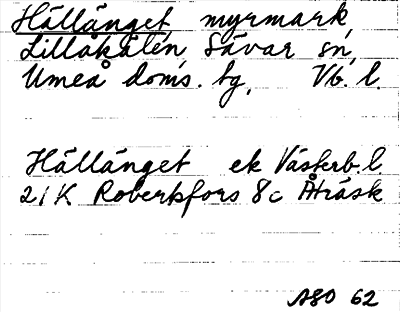 Hällänget, myrmark,
Lillåkälen, Sävar sn,
Umeå doms. tg, Vb. l.
Hällänget ek Västerb. l.
21K Robertsfors 8c Åträsk
ASO 62